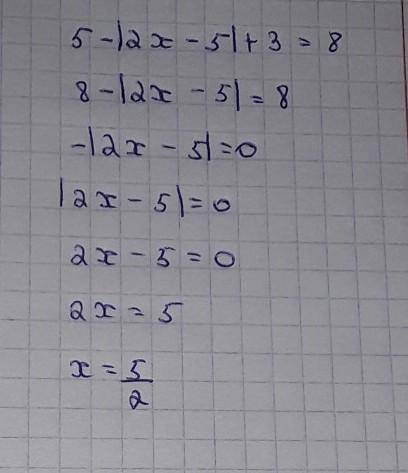 5 - |2x - 5| + 3 = 8
8 - |2x - 5| = 8
-|2x - 5| = 0
|2x - 5| = 0
2x - 5 = 0
2x = 5
x = 5/2